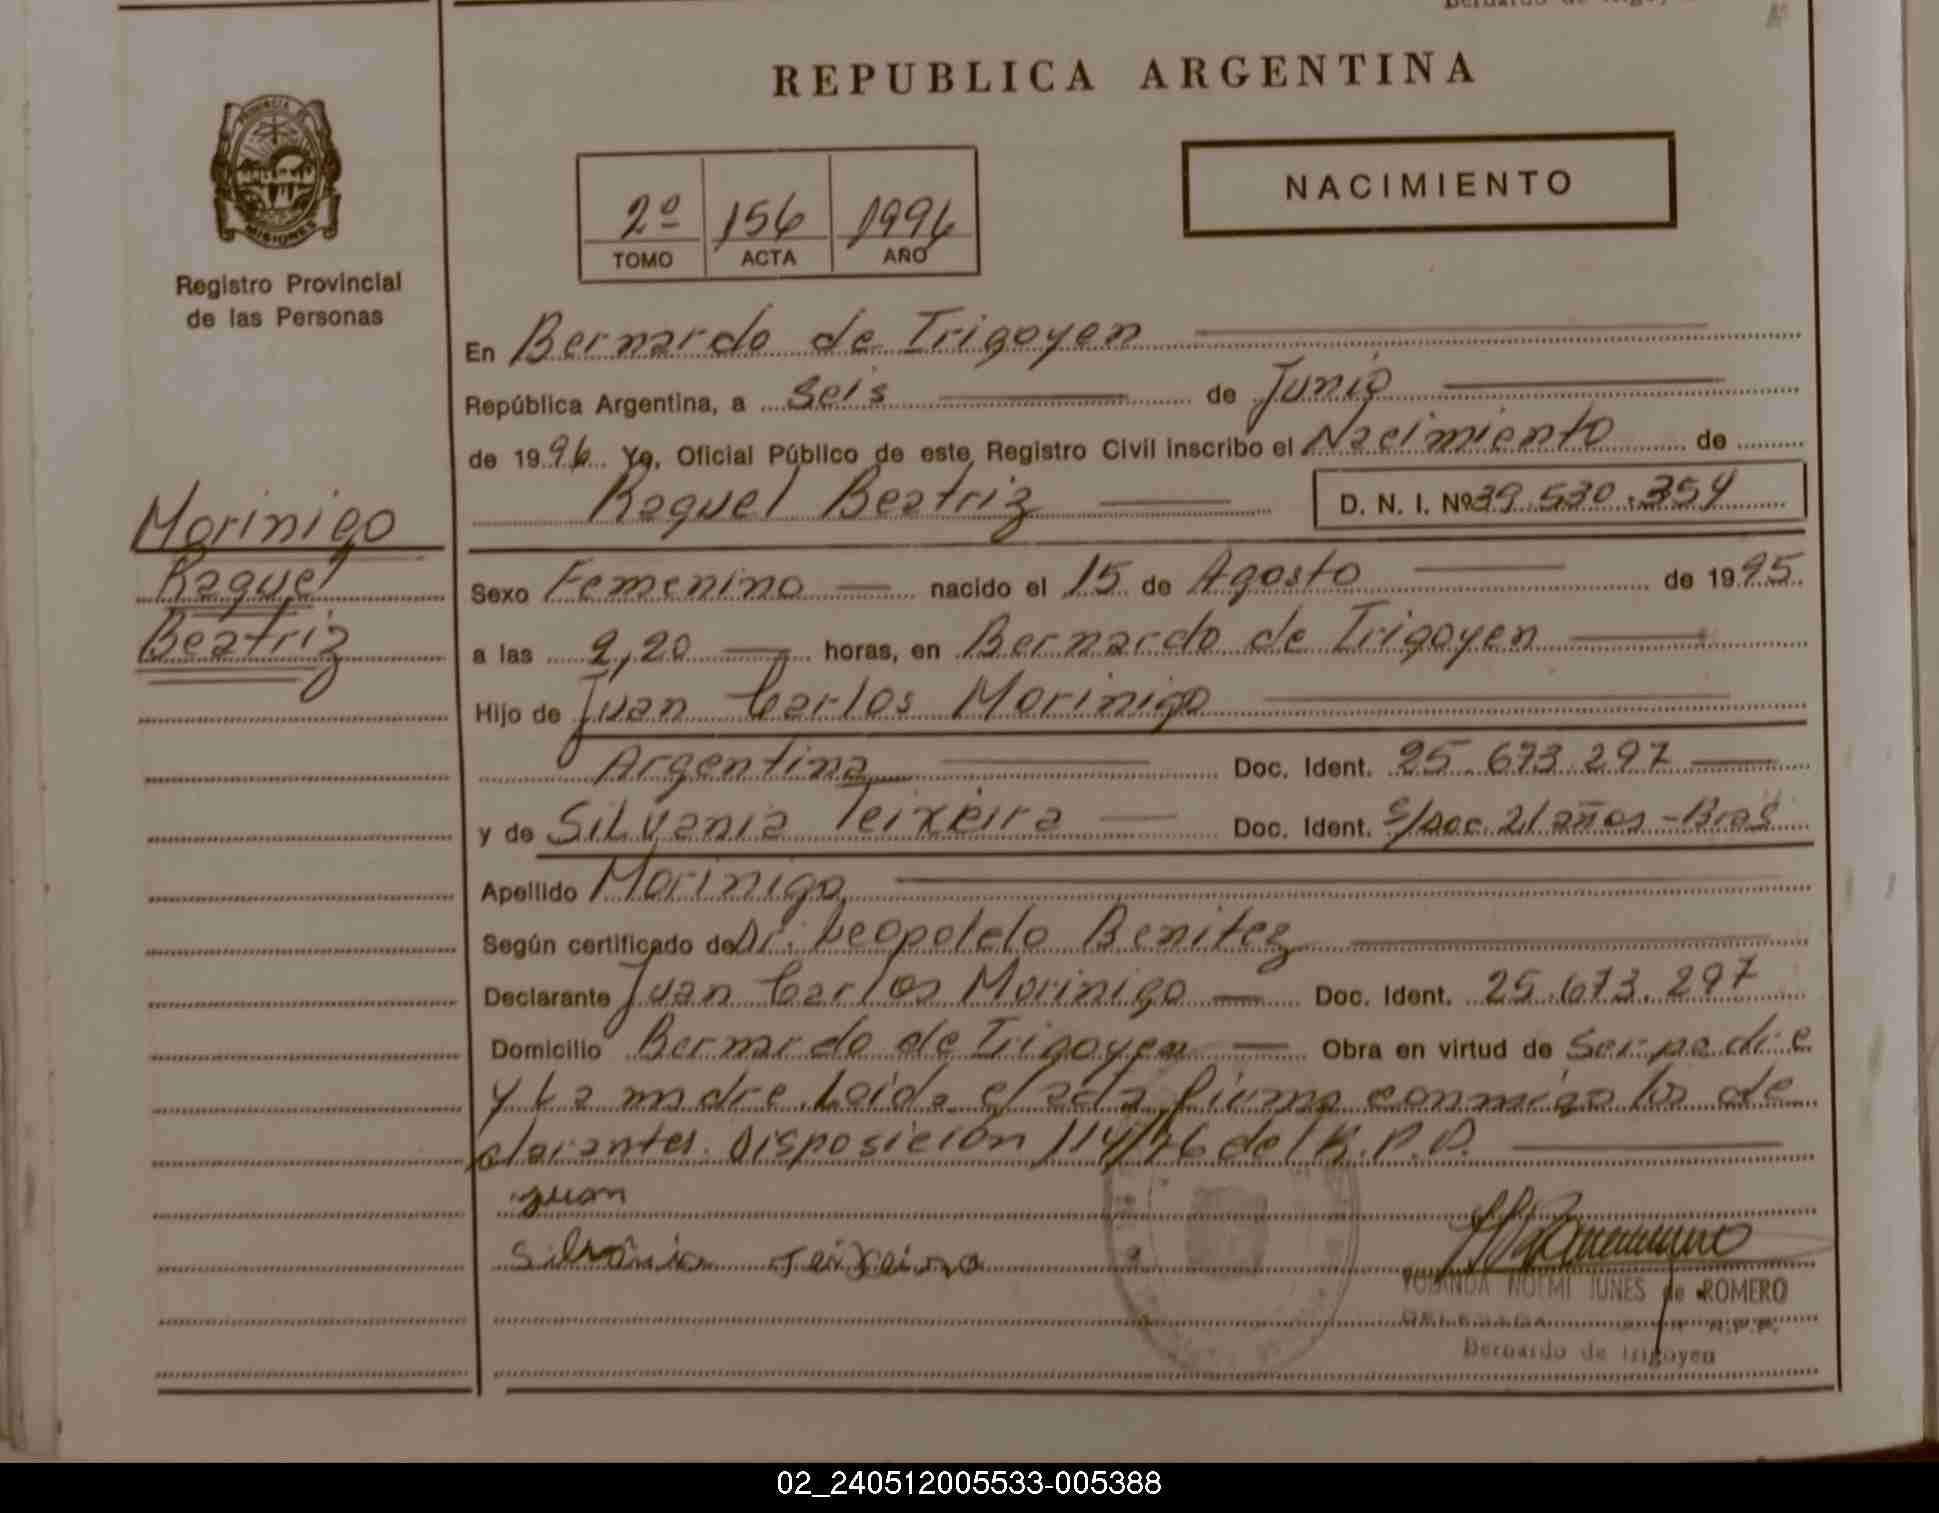 REPUBLICA ARGENTINA
PROVINCIA
MISIONES
Registro Provincial
de las Personas
NACIMIENTO
2º 156 1996
TOMO ACTA AÑO
En Bernardo de Irigoyen
República Argentina, a Seis de Junio
de 1996. Yo, Oficial Público de este Registro Civil inscribo el Nacimiento de
Raquel Beatriz D. N. I. Nº 39.530.354
Morinigo
Raquel
Beatriz
Sexo Femenino nacido el 15 de Agosto de 1995.
a las 2,20 horas, en Bernardo de Irigoyen
Hijo de Juan Carlos Morinigo
Argentina Doc. Ident. 25.673.297
y de Silvania Teixeira Doc. Ident. s/doc 21 años - Bras
Apellido Morinigo
Según certificado de Dr. Leopoldo Benitez
Declarante Juan Carlos Morinigo Doc. Ident. 25.673.297
Domicilio Bernardo de Irigoyen Obra en virtud de Ser padre
y La madre. Leida e/acta firma conmigo los de
clarantes. Disposición 114/96 del R.P.P.
Juan
Silvânia Teixeira
YOLANDA NOEMI JUNES de ROMERO
DELEGADA R.P.P.
Bernardo de Irigoyen
02_240512005533-005388